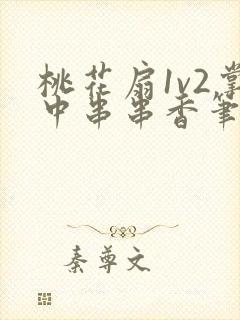 桃花扇1v2掌
中串串香笔
秦尊文